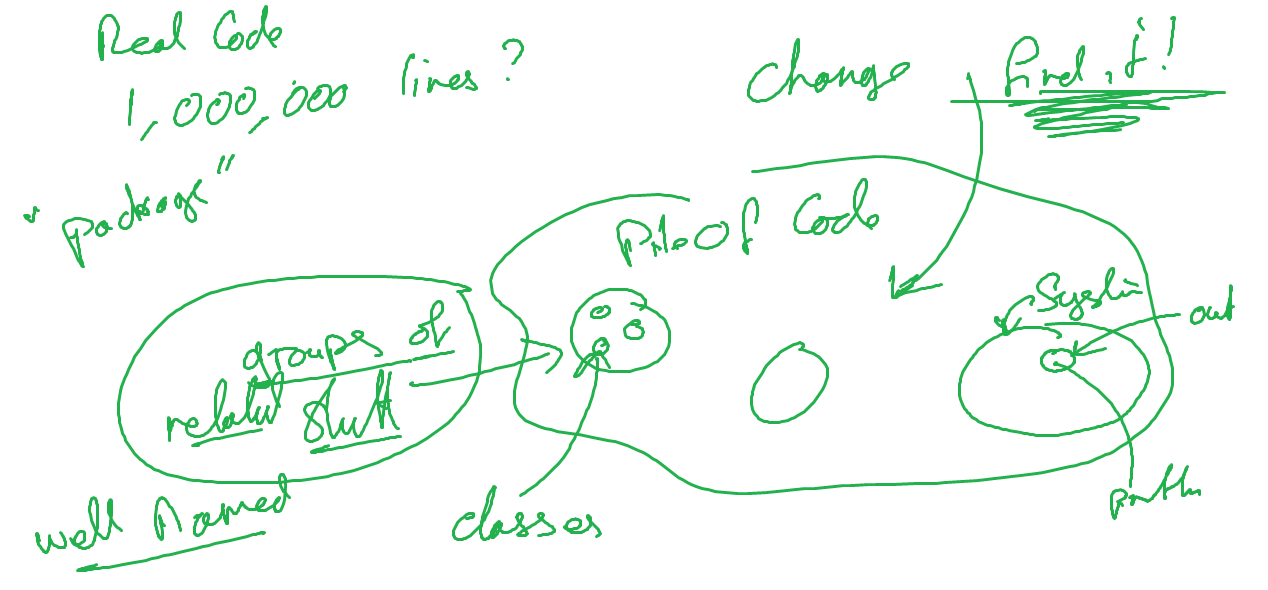 Real Code
1,000,000 lines?
"package"
change find it!
Pile Of Code
System
out
groups of
related stuff
well named
classes
println